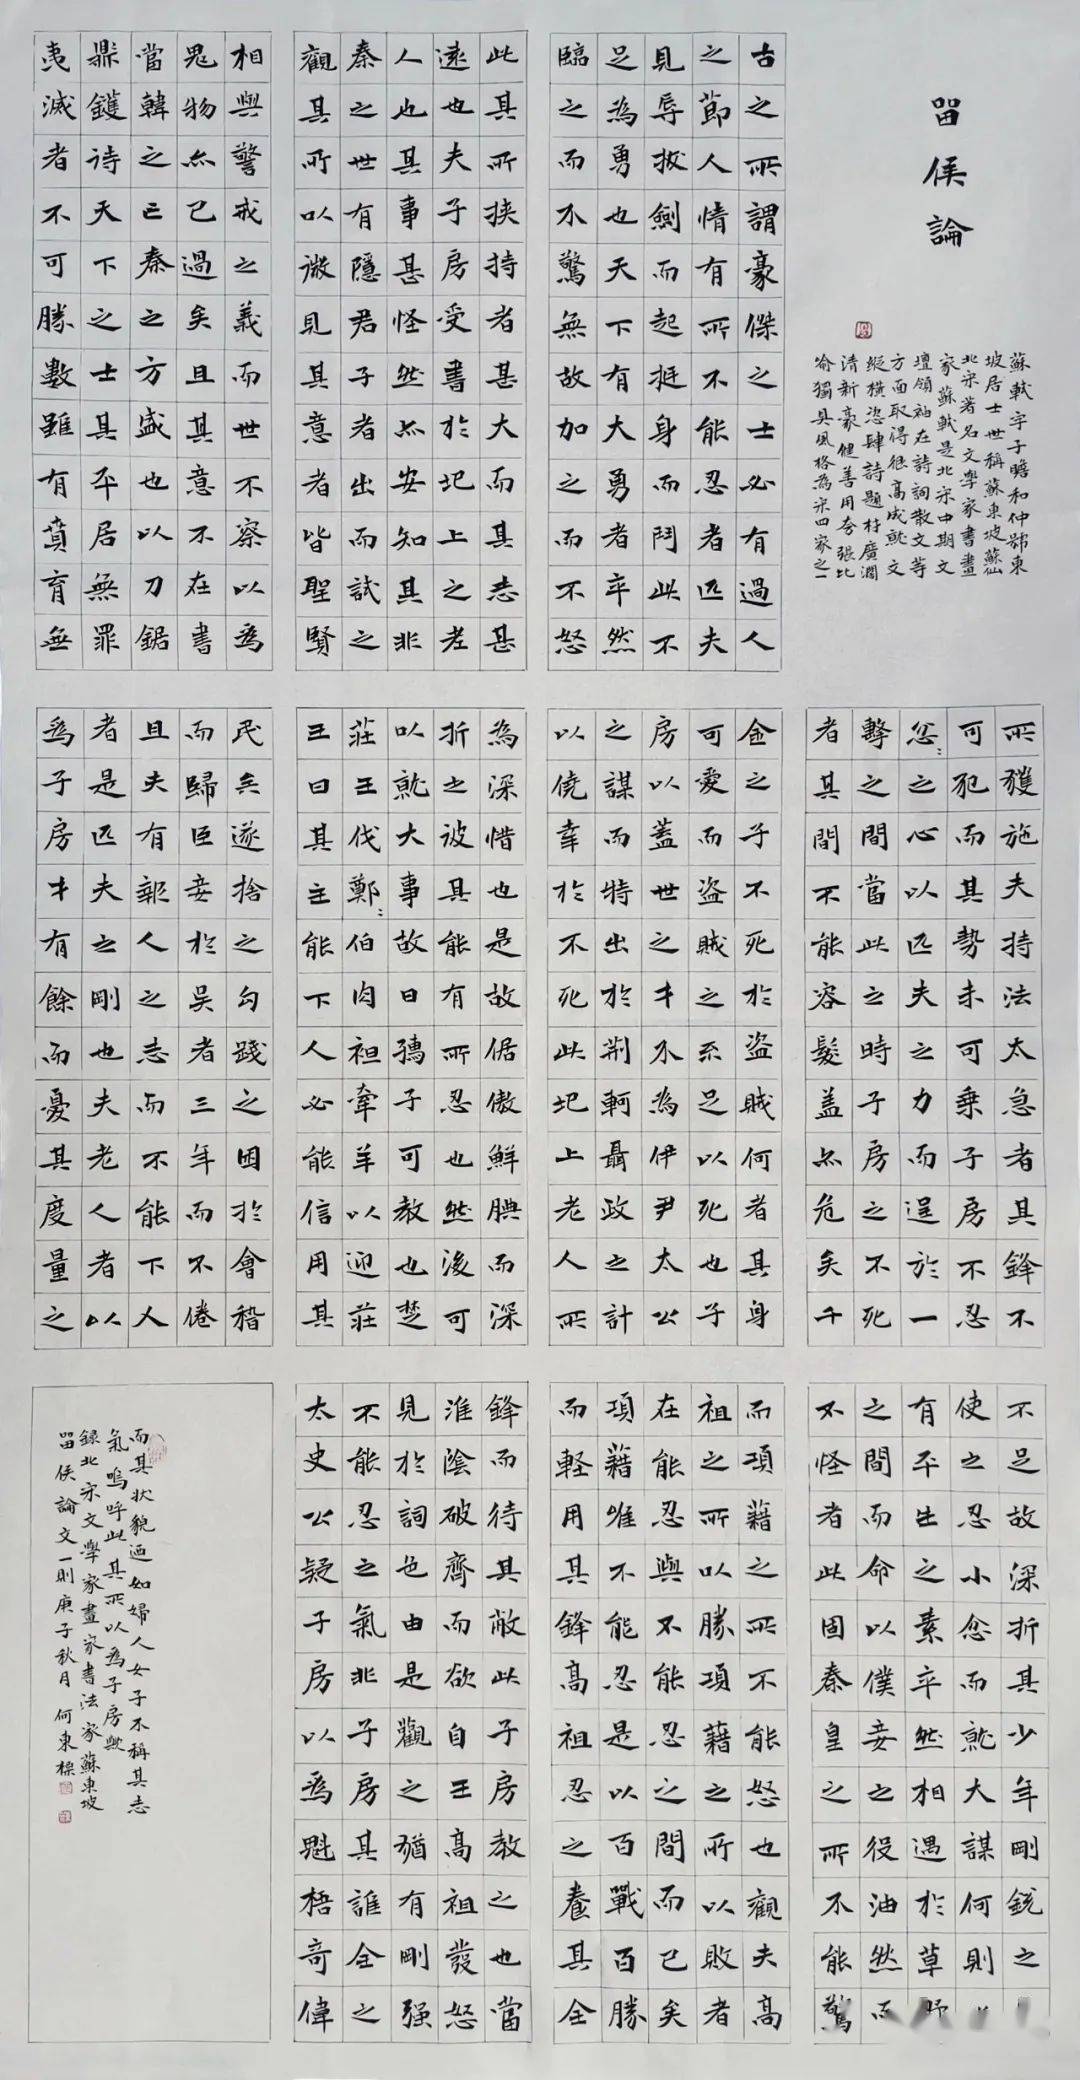 留侯論
蘇軾字子瞻和仲號東
坡居士世稱蘇東坡蘇仙
北宋著名文學家書畫
家蘇軾是北宋中期文
壇領袖在詩詞散文等
方面取得很高成就文
縱橫恣肆詩題材廣濶
清新豪健善用夸張比
喻獨具風格為宋四家之一
古之所謂豪傑之士必有過人
之節人情有所不能忍者匹夫
見辱拔劍而起挺身而鬥此不
足為勇也天下有大勇者卒然
臨之而不驚無故加之而不怒
此其所挟持者甚大而其志甚
遠也夫子房受書於圯上之老
人也其事甚怪然亦安知其非
秦之世有隱君子者出而試之
觀其所以微見其意者皆聖賢
相與警戒之義而世不察以爲
鬼物亦已過矣且其意不在書
當韓之亡秦之方盛也以刀鋸
鼎鑊待天下之士其平居無罪
夷滅者不可勝數雖有賁育無
所獲施夫持法太急者其鋒不
可犯而其勢未可乘子房不忍
忿〻之心以匹夫之力而逞於一
擊之間當此之時子房之不死
者其間不能容髮蓋亦危矣千
金之子不死於盜賊何者其身
可愛而盜賊之系足以死也子
房以蓋世之才不為伊尹太公
之謀而特出於荊軻聶政之計
以僥幸於不死此圯上老人所
為深惜也是故倨傲鮮腆而深
折之彼其能有所忍也然後可
以就大事故曰孺子可教也楚
莊王伐鄭〻伯肉袒牽羊以迎莊
王曰其主能下人必能信用其
民矣遂捨之勾踐之困於會稽
而歸臣妾於吳者三年而不倦
且夫有報人之志而不能下人
者是匹夫之剛也夫老人者以
爲子房才有餘而憂其度量之
不足故深折其少年剛銳之
使之忍小忿而就大謀何則
有平生之素卒然相遇於草野
之間而命以僕妾之役油然而
不怪者此固秦皇之所不能驚
而項藉之所不能怒也觀夫高
祖之所以勝項藉之所以敗者
在能忍與不能忍之間而已矣
項藉唯不能忍是以百戰百勝
而輕用其鋒高祖忍之養其全
鋒而待其敝此子房教之也當
淮陰破齊而欲自王高祖發怒
見於詞色由是觀之猶有剛强
不能忍之氣非子房其誰全之
太史公疑子房以爲魁梧奇偉
而其狀貌迺如婦人女子不稱其志
氣嗚呼此其所以爲子房歟
録北宋文學家畫家書法家蘇東坡
留侯論文一則庚子秋月何東標